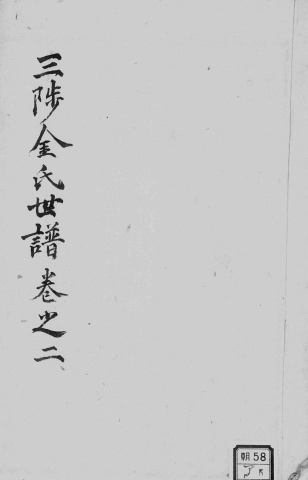 三陟金氏世譜卷之二
朝58